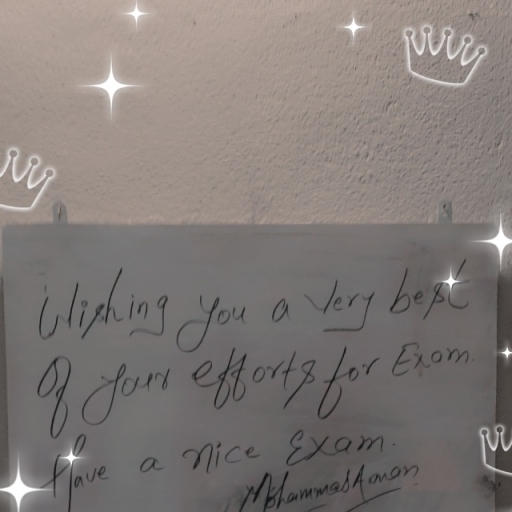 Wishing you a very best
Of your efforts for Exam.
Have a nice Exam.
Mohammad Aman